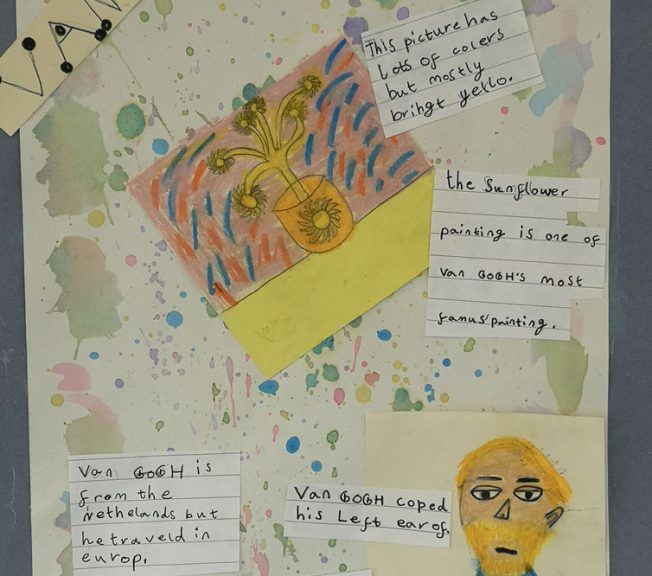 VAN
This picture has
lots of colers
but mostly
brihgt yello.
the Sunflower
painting is one of
van GOGH's most
famus painting.
Van GOGH is
from the
Nethelands but
he traveld in
europ.
Van GOGH coped
his Left ear of.